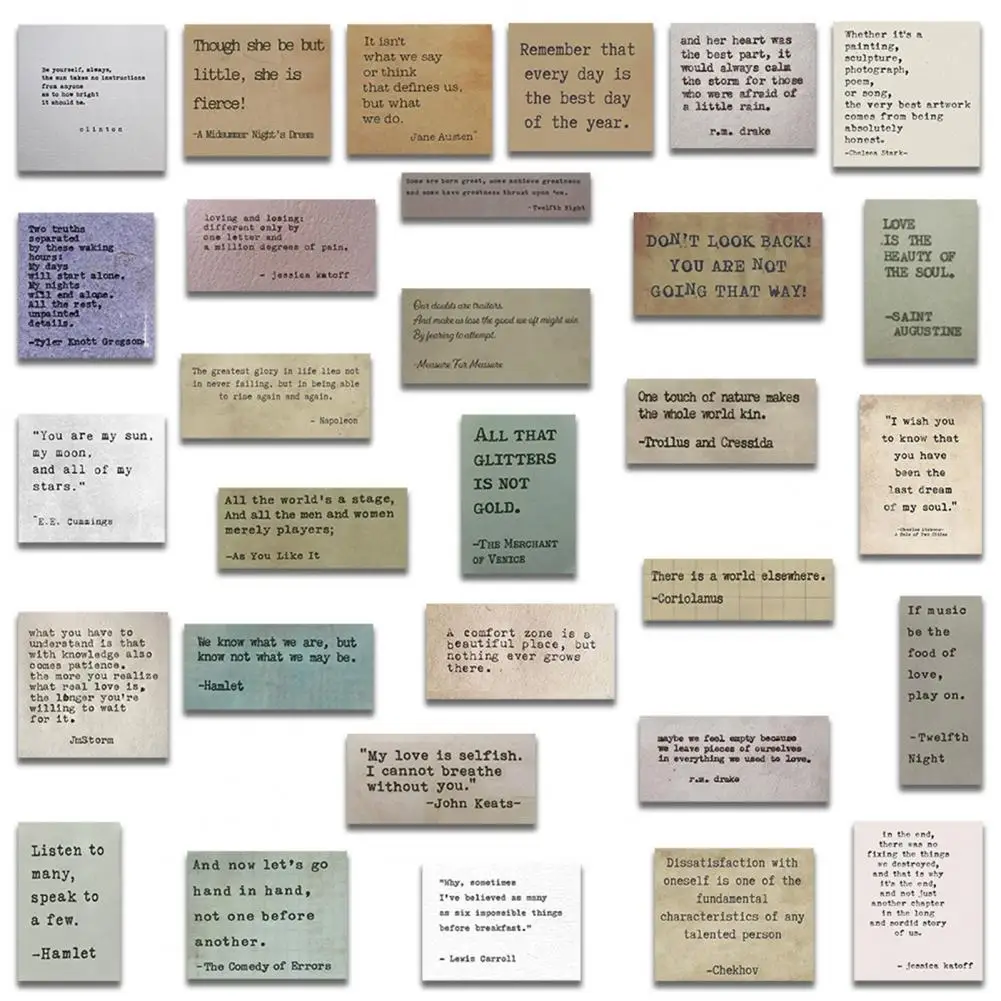 Be yourself, always,
the sun takes no instructions
from anyone
as to how bright
it should be.
clinton
Though she be but
little, she is
fierce!
-A Midsummer Night's Dream
It isn't
what we say
or think
that defines us,
but what
we do.
Jane Austen
Remember that
every day is
the best day
of the year.
and her heart was
the best part, it
would always calm
the storm for those
who were afraid of
a little rain.
r.m. drake
Whether it's a
painting,
sculpture,
photograph,
poem,
or song,
the very best artwork
comes from being
absolutely
honest.
-Chelsea Stark-
Some are born great, some achieve greatness
and some have greatness thrust upon 'em.
-Twelfth Night
Two truths
separated
by these waking
hours:
My days
will start alone.
My nights
will end alone.
All the rest,
unpainted
details.
-Tyler Knott Gregson-
loving and losing:
different only by
one letter and
a million degrees of pain.
- jessica katoff
DON'T LOOK BACK!
YOU ARE NOT
GOING THAT WAY!
LOVE
IS THE
BEAUTY OF
THE SOUL.
-SAINT
AUGUSTINE
Our doubts are traitors,
And make us lose the good we oft might win
By fearing to attempt.
-Measure For Measure
The greatest glory in life lies not
in never failing, but in being able
to rise again and again.
- Napoleon
One touch of nature makes
the whole world kin.
-Troilus and Cressida
"You are my sun,
my moon,
and all of my
stars."
E.E. Cummings
ALL THAT
GLITTERS
IS NOT
GOLD.
-THE MERCHANT
OF VENICE
"I wish you
to know that
you have
been the
last dream
of my soul."
-Charles Dickens-
A Tale of Two Cities
All the world's a stage,
And all the men and women
merely players;
-As You Like It
There is a world elsewhere.
-Coriolanus
what you have to
understand is that
with knowledge also
comes patience.
the more you realize
what real love is,
the longer you're
willing to wait
for it.
JmStorm
We know what we are, but
know not what we may be.
-Hamlet
A comfort zone is a
beautiful place, but
nothing ever grows
there.
If music
be the
food of
love,
play on.
-Twelfth
Night
"My love is selfish.
I cannot breathe
without you."
-John Keats-
maybe we feel empty because
we leave pieces of ourselves
in everything we used to love.
r.m. drake
Listen to
many,
speak to
a few.
-Hamlet
And now let's go
hand in hand,
not one before
another.
-The Comedy of Errors
"Why, sometimes
I've believed as many
as six impossible things
before breakfast."
- Lewis Carroll
Dissatisfaction with
oneself is one of the
fundamental
characteristics of any
talented person
-Chekhov
in the end,
there was no
fixing the things
we destroyed,
and that is why
it's the end,
and not just
another chapter
in the long
and sordid story
of us.
- jessica katoff